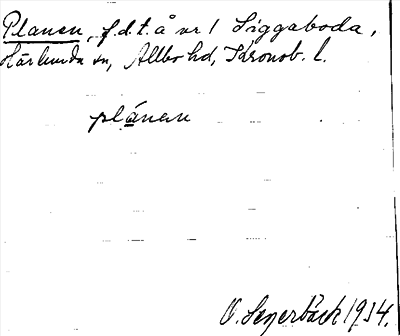 Planen, f.d.t. å nr 1 Siggaboda,
Härlunda sn, Allbo hd, Kronob. l.
plánen
O. Segerbäck 1934.